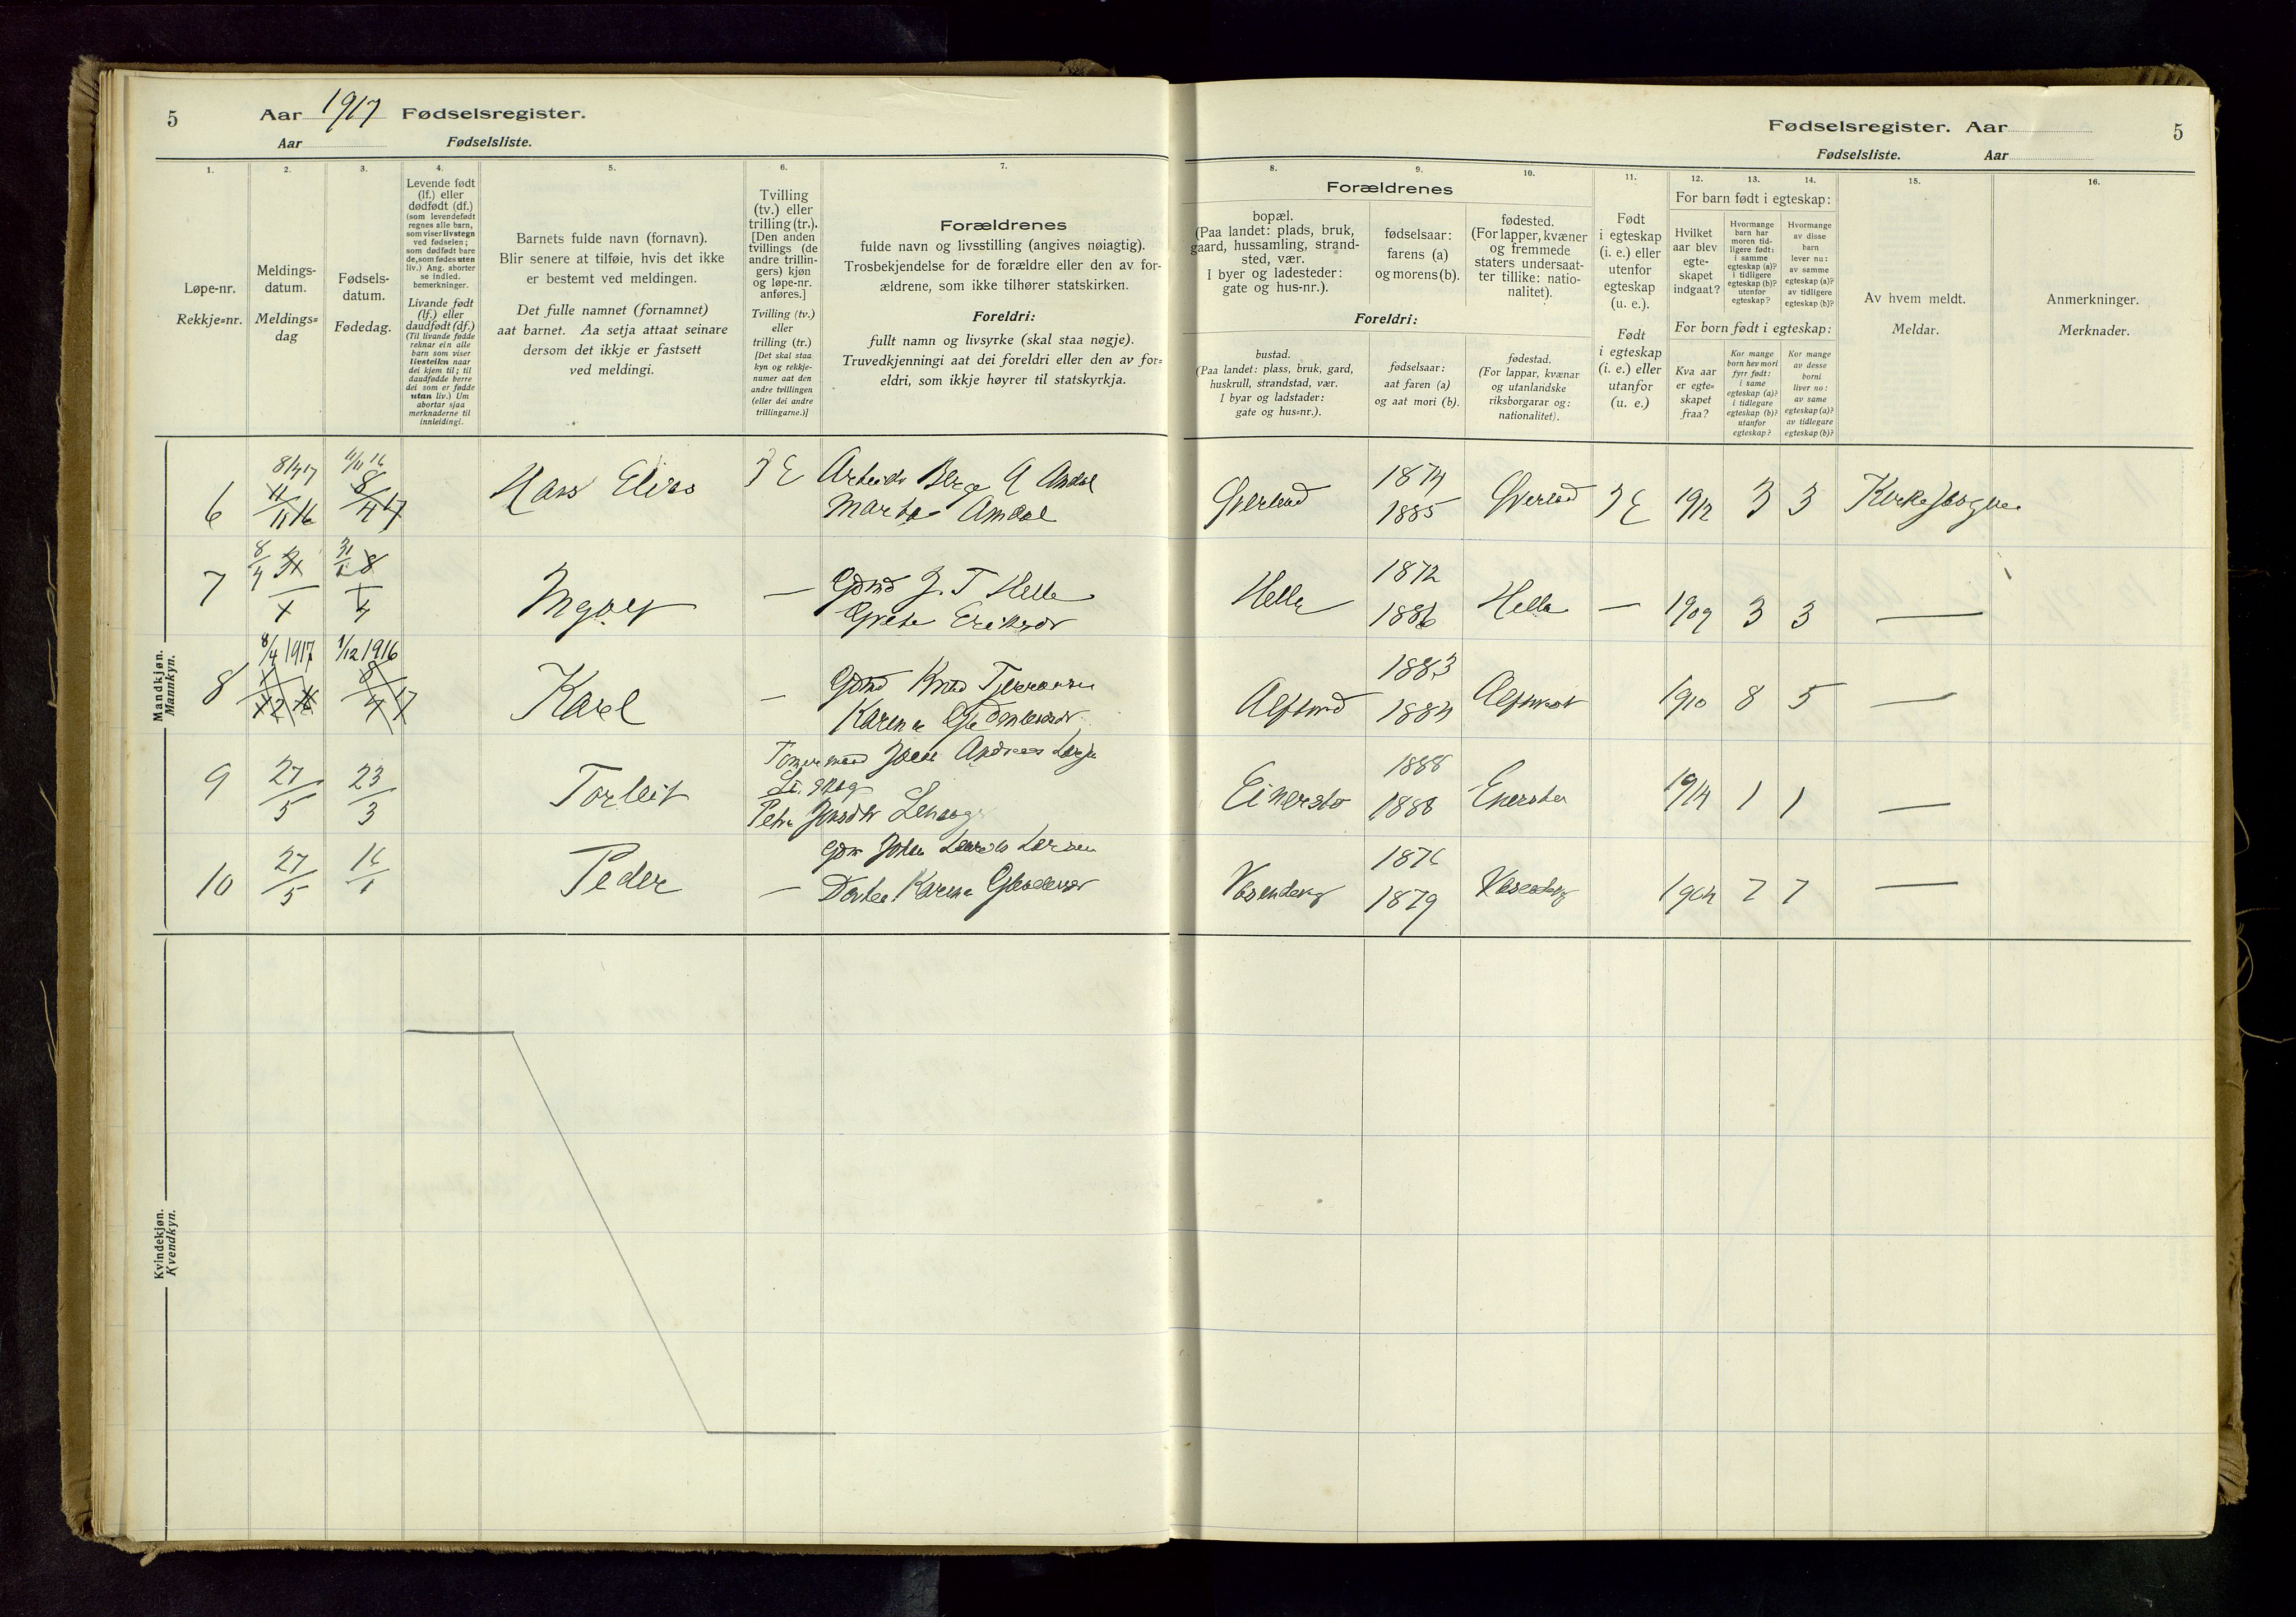 5
Aar 1917 Fødselsregister.
Aar Fødselsliste.
1.
2.
3.
4.
5.
6.
7.
Løpe-nr.
Rekkje=nr.
Meldings-
datum.
Meldings=
dag
Fødsels-
datum.
Fødedag.
Levende født
(lf.) eller
dødfødt (df.)
(som levendefødt
regnes alle barn,
som viser livstegn
ved fødselen;
som dødfødt bare
de, som fødes uten
liv.) Ang. aborter
se indled.
bemerkninger.
Livande født
(lf.) eller
daudfødt (df.)
(Til livande fødde
reknar ein alle
barn som viser
livsteikn naar
dei kjem til; til
daudfødde berre
dei som er fødde
utan liv.) Um
abortar sjaa
merknaderne til
innleidingi.
Barnets fulde navn (fornavn).
Blir senere at tilføie, hvis det ikke
er bestemt ved meldingen.
Det fulle namnet (fornamnet)
aat barnet. Aa setja attaat seinare
dersom det ikkje er fastsett
ved meldingi.
Tvilling
(tv.) eller
trilling (tr.).
[Den anden
tvillings (de
andre trillin-
gers) kjøn
og løpe-nr.
anføres.]
Tvilling (tv.)
eller
trilling (tr.)
[Det skal staa
kyn og rekkje-
numer aat den
andre tvillingen
(eller dei andre
trillingarne.)]
Forældrenes
fulde navn og livsstilling (angives nøiagtig).
Trosbekjendelse for de forældre eller den av for-
ældrene, som ikke tilhører statskirken.
Foreldri:
fullt namn og livsyrke (skal staa nøgje).
Truvedkjenningi aat dei foreldri eller den av for=
eldri, som ikkje høyrer til statskyrkja.
Mandkjøn.
Mannkyn.
6 Hans Elias
Martha Amdal
7 Helle
8 8/4 1917 1/12 1916 Karel
9 27/5 23/3 Torleif
10 27/5 Peder
Kvindekjøn.
Kvendkyn.
Fødselsregister. Aar
5
Fødselsliste. Aar
8.
9.
10.
11.
12.
13.
14.
15.
16.
Forældrenes
bopæl.
(Paa landet: plads, bruk,
gaard, hussamling, strand-
sted, vær.
I byer og ladesteder:
gate og hus-nr.).
fødselsaar:
farens (a)
og morens (b).
fødested.
(For lapper, kvæner
og fremmede
staters undersaat-
ter tillike: natio-
nalitet).
Foreldri:
bustad.
(Paa landet: plass, bruk, gard,
huskrull, strandstad, vær.
I byar og ladstader:
gate og hus=nr.).
fødselsaar:
aat faren (a)
og aat mori (b).
fødestad.
(For lappar, kvænar
og utanlandske
riksborgarar og:
nationalitet).
Født
i egteskap
(i. e.) eller
utenfor
egteskap
(u. e.).
Født
i egteskap
(i. e.) eller
utanfor
(u. e.)
For barn født i egteskap:
Hvilket
aar blev
egte-
skapet
indgaat?
Hvormange
barn har
moren tid-
ligere født:
i samme
egteskap (a)?
i tidligere
egteskap (b)?
utenfor
egteskap?
Hvormange
av disse
barn
lever nu:
av samme
egteskap (a)?
av tidligere
egteskap (b)?
For born født i egteskap:
Kva aar
er egte=
skapet
fraa?
Kor mange
born hev mori
fyrr født:
i same
egteskap (a)?
i tidlegare
egteskap (b)?
utanfor
egteskap?
Kor mange
av desse
borni
liver no:
av same
egteskap (a)?
av tidlegare
egteskap (b)?
Av hvem meldt.
Meldar.
Anmerkninger.
Merknader.
1874
1885 1912 3 3
1872
Helle 1886 Helle — 1909 3 3 —
1883
1884 1910 8 5 —
1888
1888 1914 1 1 —
1876
1879 1904 7 7 —